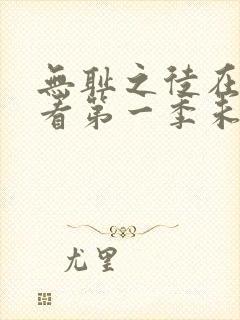 無耻之徒在
看第一季未
尤里